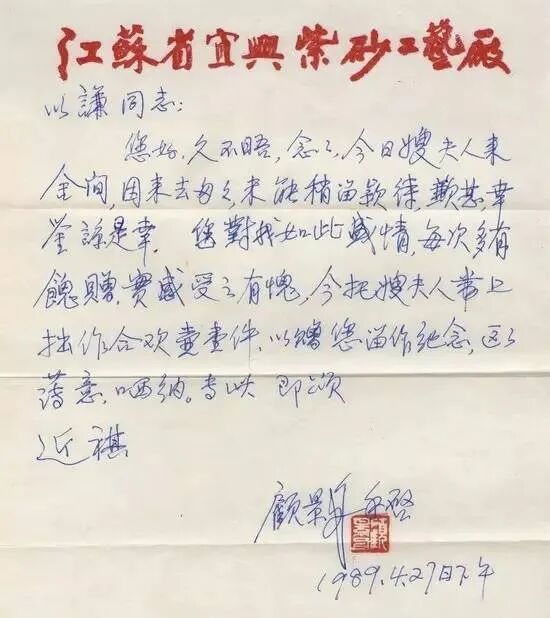 江蘇省宜興紫砂工藝廠
以謙同志:
您好,久不晤,念念,今日嫂夫人来
舍间,因来去匆匆,未能稍留款待,歉甚,幸
鉴諒是幸。您對我如此盛情,每次多有
餽贈,實感受之有愧,今托嫂夫人带上
拙作合欢壶壹件,以贈您留作紀念,区区
薄意,哂纳。专此 即颂
近祺
顧景舟 手啓
1989.4.27日下午